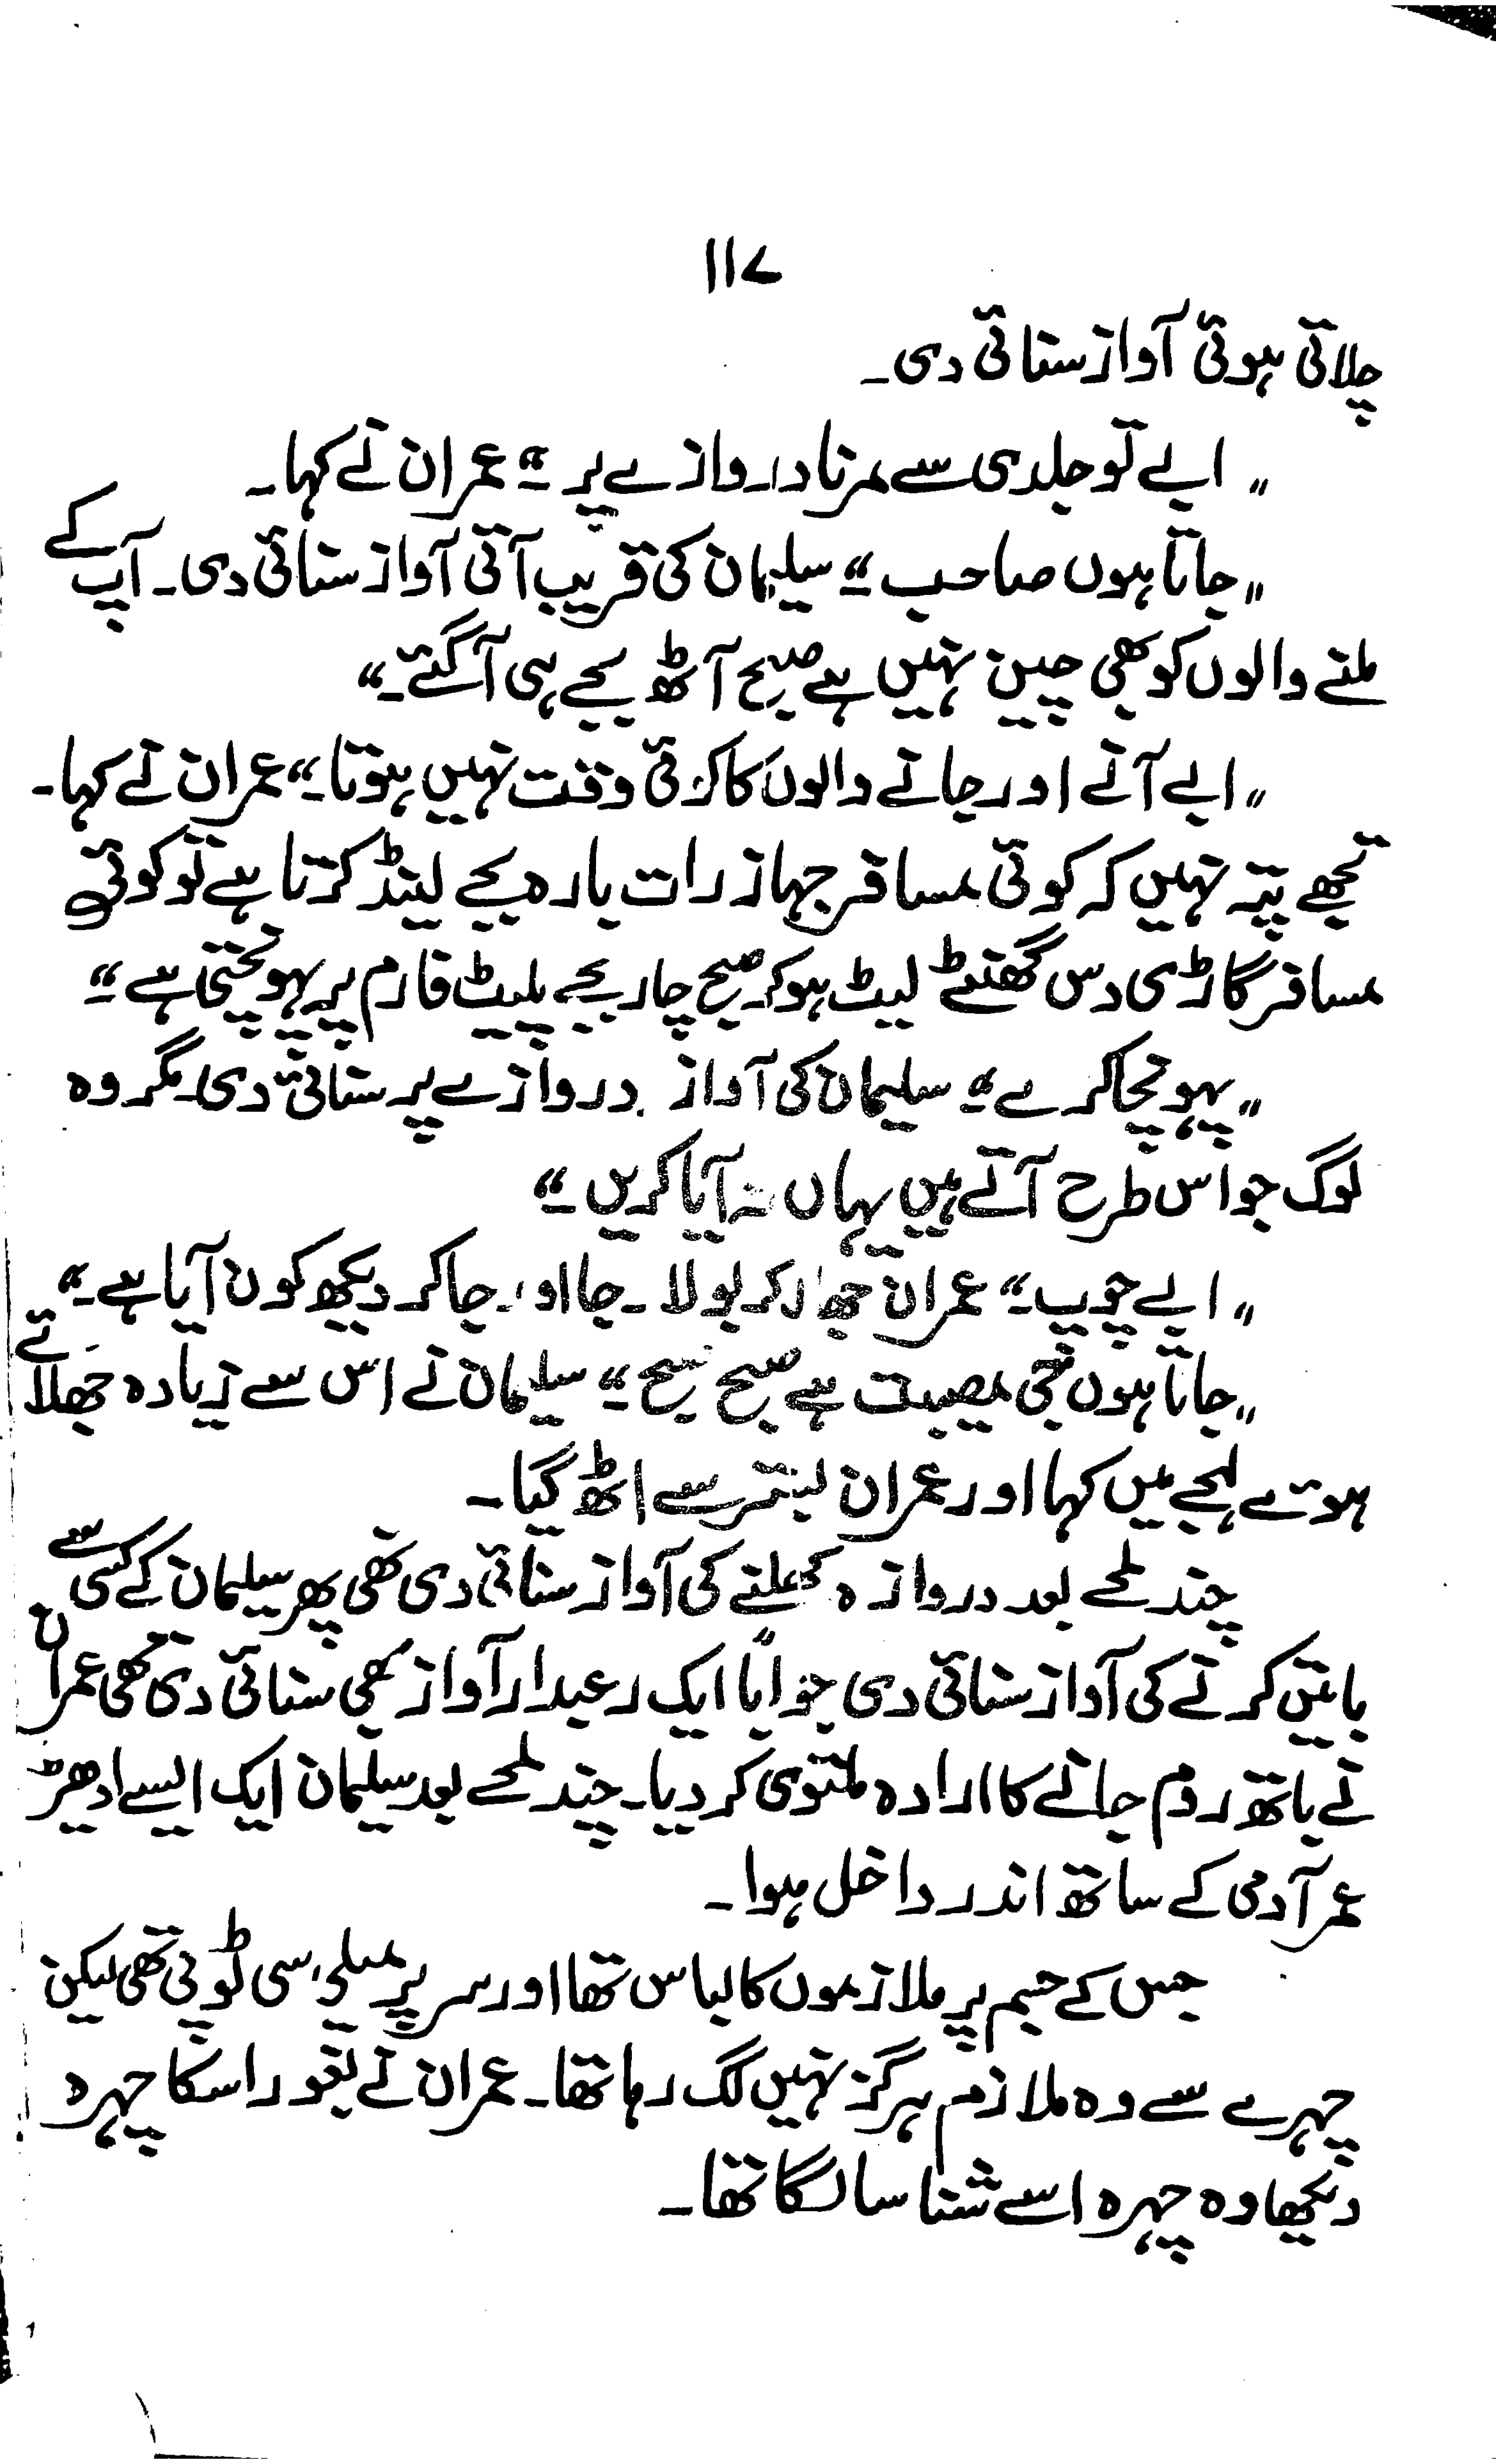 ۱۱۷
چلاتی ہوئی آواز سنائی دی۔
"ابے تو جلدی سے مرنا دروازے پر۔" عمران نے کہا۔
"جاتا ہوں صاحب۔" سلیمان کی قریب آتی آواز سنائی دی۔ آپ کے
ملنے والوں کو بھی چین نہیں ہے صبح آٹھ بجے ہی آ گئے۔"
"ابے آنے اور جانے والوں کا کوئی وقت نہیں ہوتا۔" عمران نے کہا۔
تجھے پتہ نہیں کہ کوئی مسافر جہاز رات بارہ بجے لینڈ کرتا ہے تو کوئی
مسافر گاڑی دس گھنٹے لیٹ ہو کر صبح چار بجے پلیٹ فارم پر پہونچتی ہے۔"
"پہونچا کرے۔" سلیمان کی آواز دروازے پر سنائی دی۔ مگر وہ
لوگ جو اس طرح آتے ہیں یہاں نہ آیا کریں۔"
"ابے چوپ۔" عمران جھلا کر بولا۔ جا اور جا کر دیکھ کون آیا ہے۔"
"جاتا ہوں جی مصیبت ہے صبح صبح۔" سلیمان نے اس سے زیادہ جھلاتے
ہوئے لہجے میں کہا اور عمران بستر سے اٹھ گیا۔
چند لمحے بعد دروازہ کھلنے کی آواز سنائی دی تھی پھر سلیمان کے کسی سے
باتیں کرنے کی آواز سنائی دی جواباً ایک رعبدار آواز بھی سنائی دی تھی عمران
نے باتھ روم جانے کا ارادہ ملتوی کر دیا۔ چند لمحے بعد سلیمان ایک ایسے ادھڑ
عمر آدمی کے ساتھ اندر داخل ہوا۔
جس کے جسم پر ملازموں کا لباس تھا اور سر پر میلی سی ٹوپی تھی لیکن
چہرے سے وہ ملازم ہرگز نہیں لگ رہا تھا۔ عمران نے بغور اسکا چہرہ
دیکھا وہ چہرہ اسے شناسا لگا تھا۔